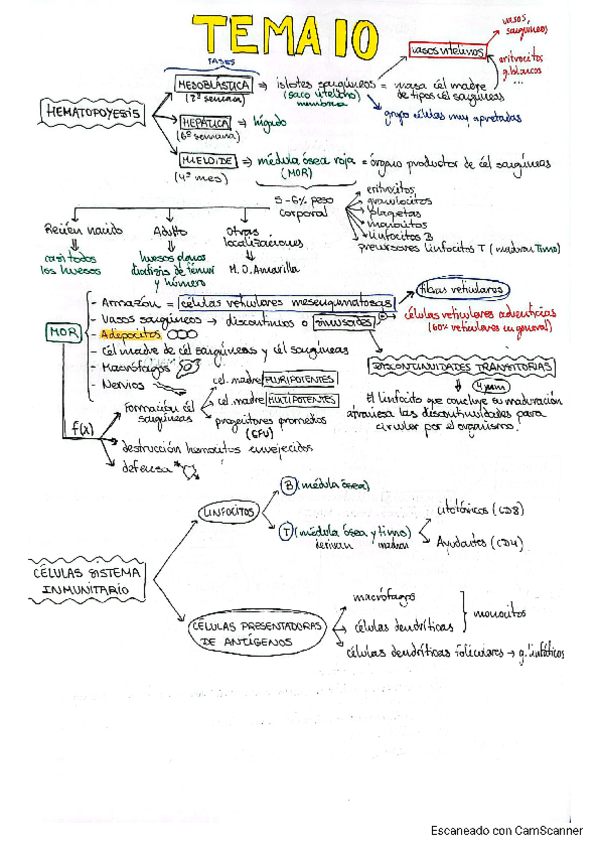 TEMA 10
FASES
HEMATOPOYESIS
MESOBLÁSTICA → islotes sanguíneos = masa cél madre
(2ª semana) (saco vitelino) de tipos cél sanguíneas
membrana
grupo células muy apretadas
vasos vitelinos
vasos sanguíneos
eritrocitos
g. blancos
...
HEPÁTICA → hígado
(6ª semana)
MIELOIDE → médula ósea roja = órgano productor de cél sanguíneas
(4º mes) (MOR)
5-6% peso
corporal
eritrocitos
granulocitos
plaquetas
monocitos
linfocitos B
precursores linfocitos T (maduran Timo)
Recién nacido
casi todos
los huesos
Adulto
huesos planos
diáfisis de fémur
y húmero
Otras
localizaciones
M.O. Amarilla
MOR
- Armazón = células reticulares mesenquimatosas
fibras reticulares
- Vasos sanguíneos → discontinuos o sinusoides
células reticulares adventicias
(60% reticulares en general)
- Adipocitos
- Cél madre de cél sanguíneas y cél sanguíneas
- Macrófagos
- Nervios
DISCONTINUIDADES TRANSITORIAS
4 μm
El linfocito que concluye su maduración
atraviesa las discontinuidades para
circular por el organismo.
f(x)
formación cél
sanguíneas
cel. madre PLURIPOTENTES
cel. madre MULTIPOTENTES
progenitores
(CFU)
destrucción hematíes envejecidos
defensa
CÉLULAS SISTEMA
INMUNITARIO
LINFOCITOS
B (médula ósea)
T (médula ósea y timo)
derivan maduran
citotóxicos (CD8)
Ayudantes (CD4)
CÉLULAS PRESENTADORAS
DE ANTÍGENOS
macrófagos
células dendríticas
monocitos
células dendríticas foliculares → g. linfáticos
Escaneado con CamScanner